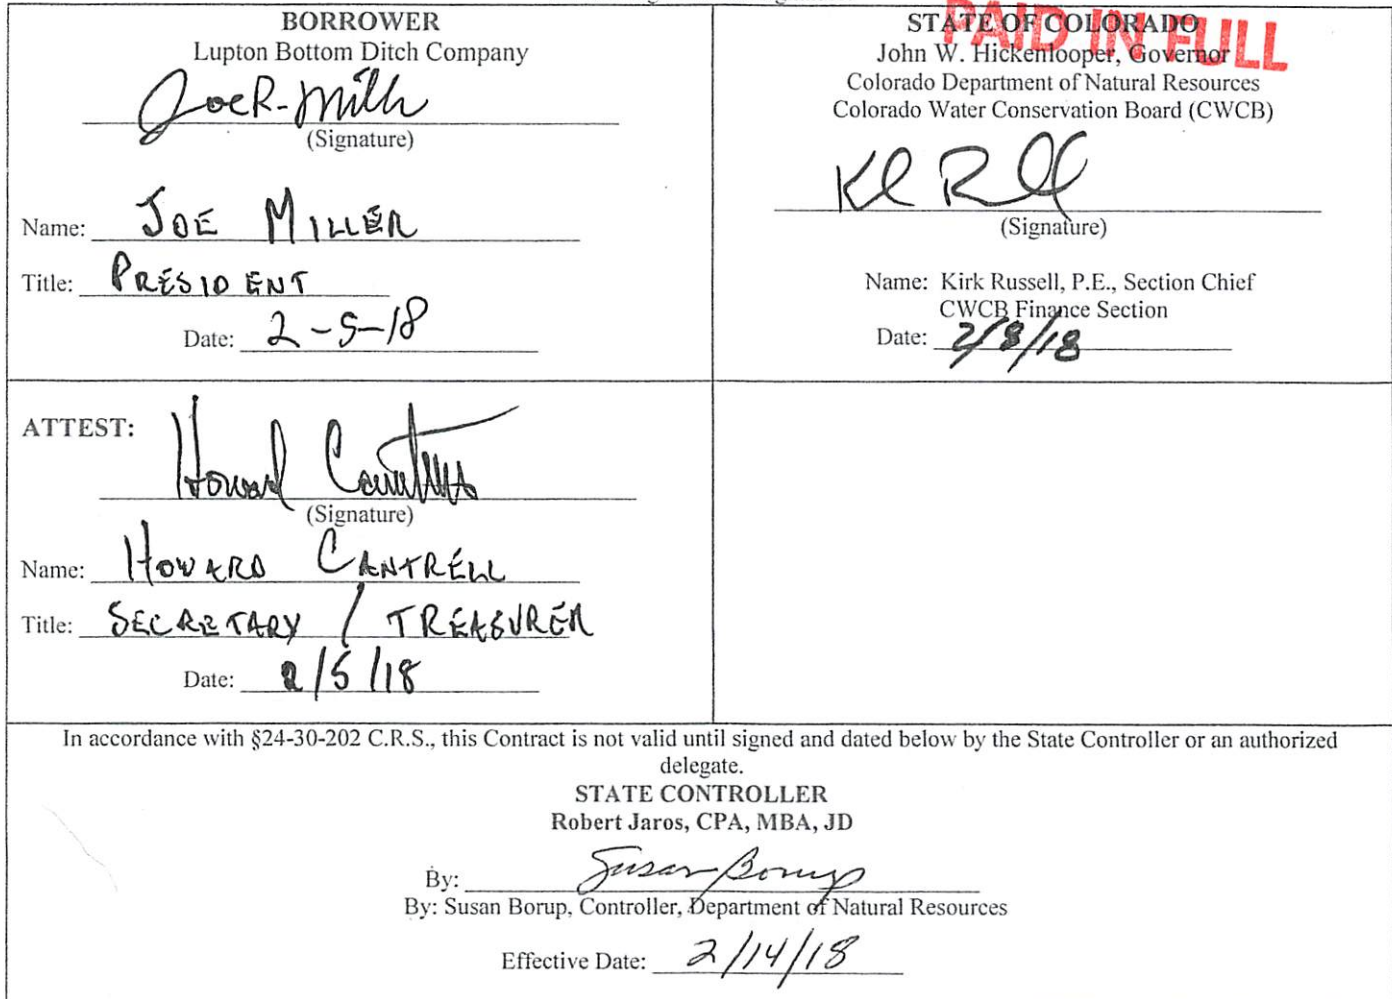 BORROWER
Lupton Bottom Ditch Company
Joe R. Miller
(Signature)
Name: JOE MILLER
Title: PRESIDENT
Date: 2-5-18
STATE OF COLORADO
PAID IN FULL
John W. Hickenlooper, Governor
Colorado Department of Natural Resources
Colorado Water Conservation Board (CWCB)
(Signature)
Name: Kirk Russell, P.E., Section Chief
CWCB Finance Section
Date: 2/8/18
ATTEST:
Howard Cantrell
(Signature)
Name: HOWARD CANTRELL
Title: SECRETARY / TREASURER
Date: 2/5/18
In accordance with §24-30-202 C.R.S., this Contract is not valid until signed and dated below by the State Controller or an authorized
delegate.
STATE CONTROLLER
Robert Jaros, CPA, MBA, JD
By: Susan Borup
By: Susan Borup, Controller, Department of Natural Resources
Effective Date: 2/14/18